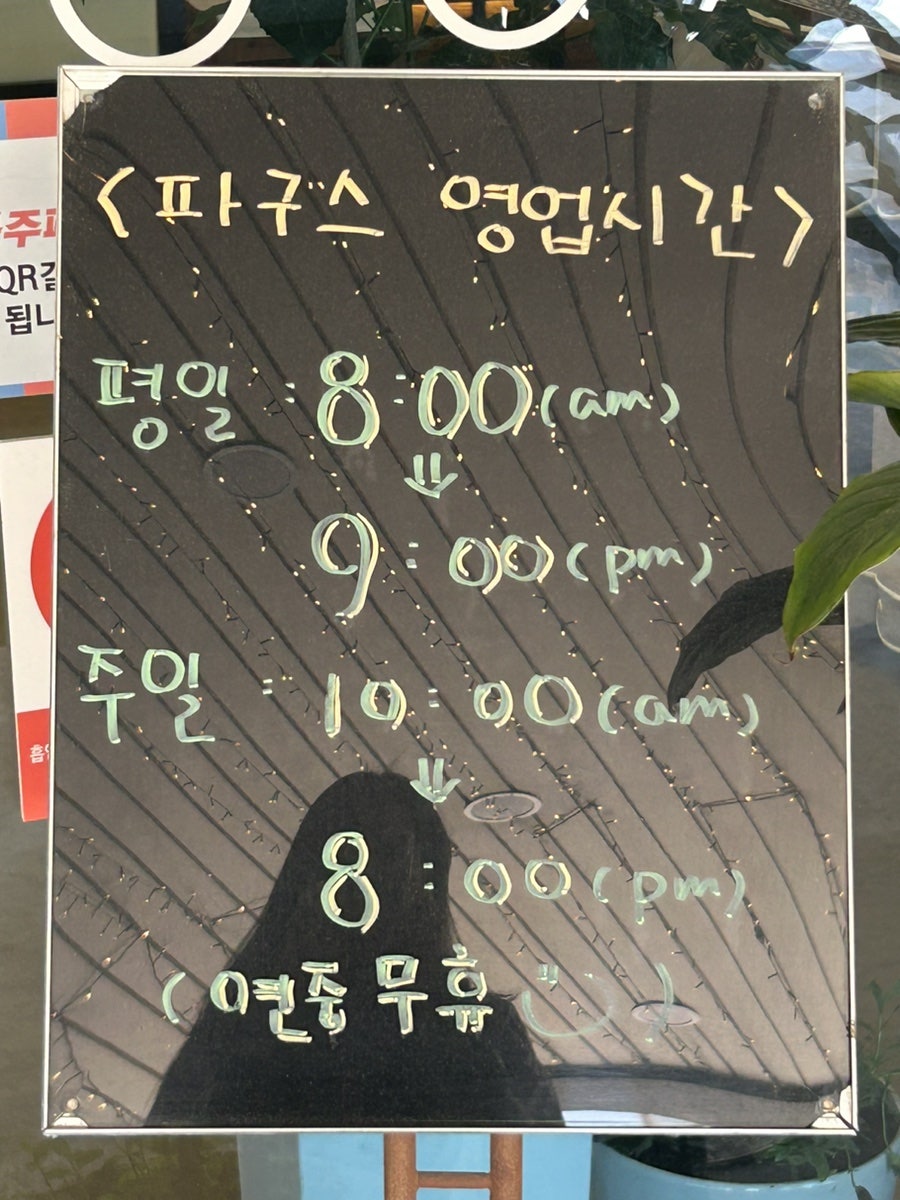 <파구스 영업시간>
평일 : 8:00(am)
⇓
9:00(pm)
주일 : 10:00(am)
⇓
8:00(pm)
(연중무휴 )
QR
됩니